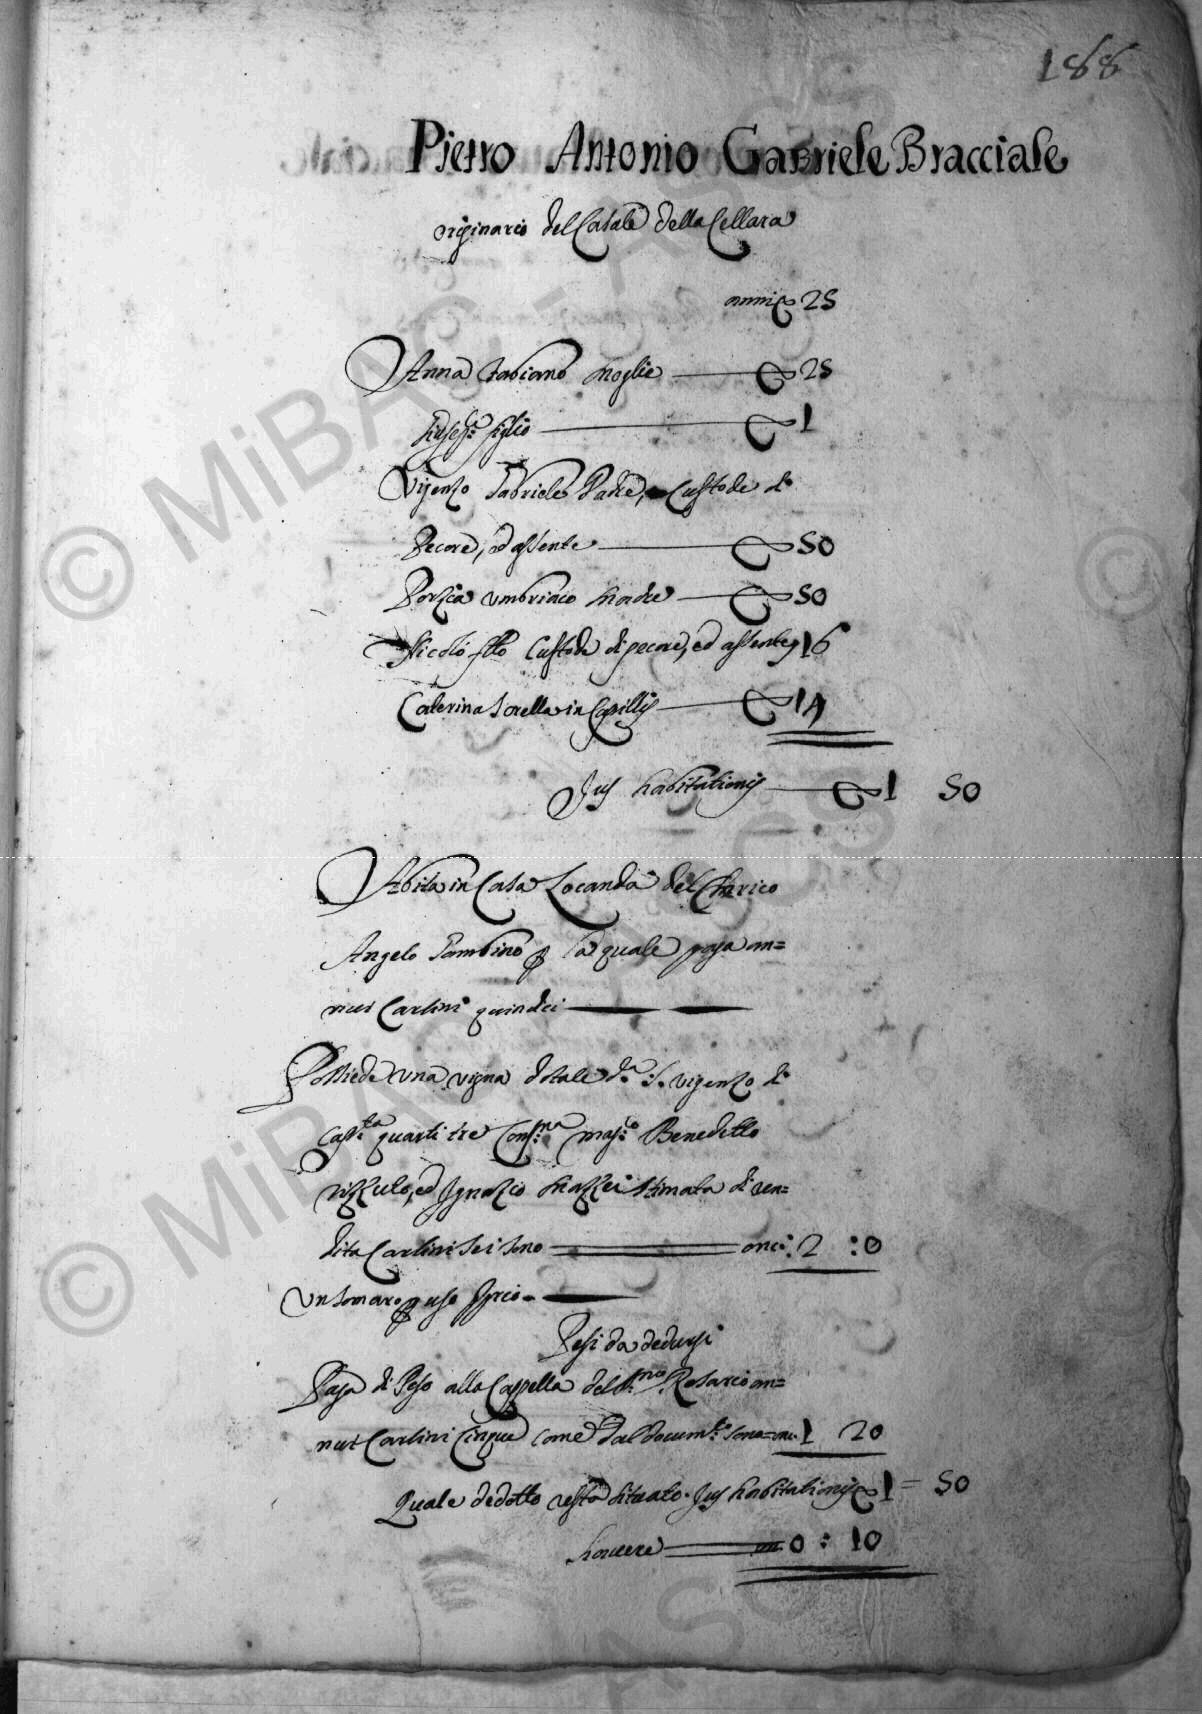 188
Pietro Antonio Gabriele Bracciale
originario del Casale della Cellara
anni 25
Anna Fabiano moglie 25
figlio 1
Vigenzo Gabriele Padre, Custode di
Pecore, ed assente 50
Porzia Umbriaco madre 50
Nicolò fllo Custode di pecore, ed assente 16
Caterina Sorella in Capillis 14
Jus habitationis 1 50
Abita in Casa Locanda del Cherico
Angelo Gambino la quale paga an=
nui Carlini quindeci
Possiede una vigna dotale da S. Vigenzo di
quarti tre Benedetto
Rizzuto, ed Ignazio Mazzei stimata di ren=
dita Carlini sei sono onci: 2 :0
Un somaro uso
Pesi da dedursi
Paga di Peso alla Cappella del Rosario an=
nui Carlini Cinque come dal docum.to sono 1 20
Quale dedotto resta situato. Jus habitationis 1 = 50
0 : 10
© MiBAC - ASCS
© MiBAC - ASCS
©
ASCS